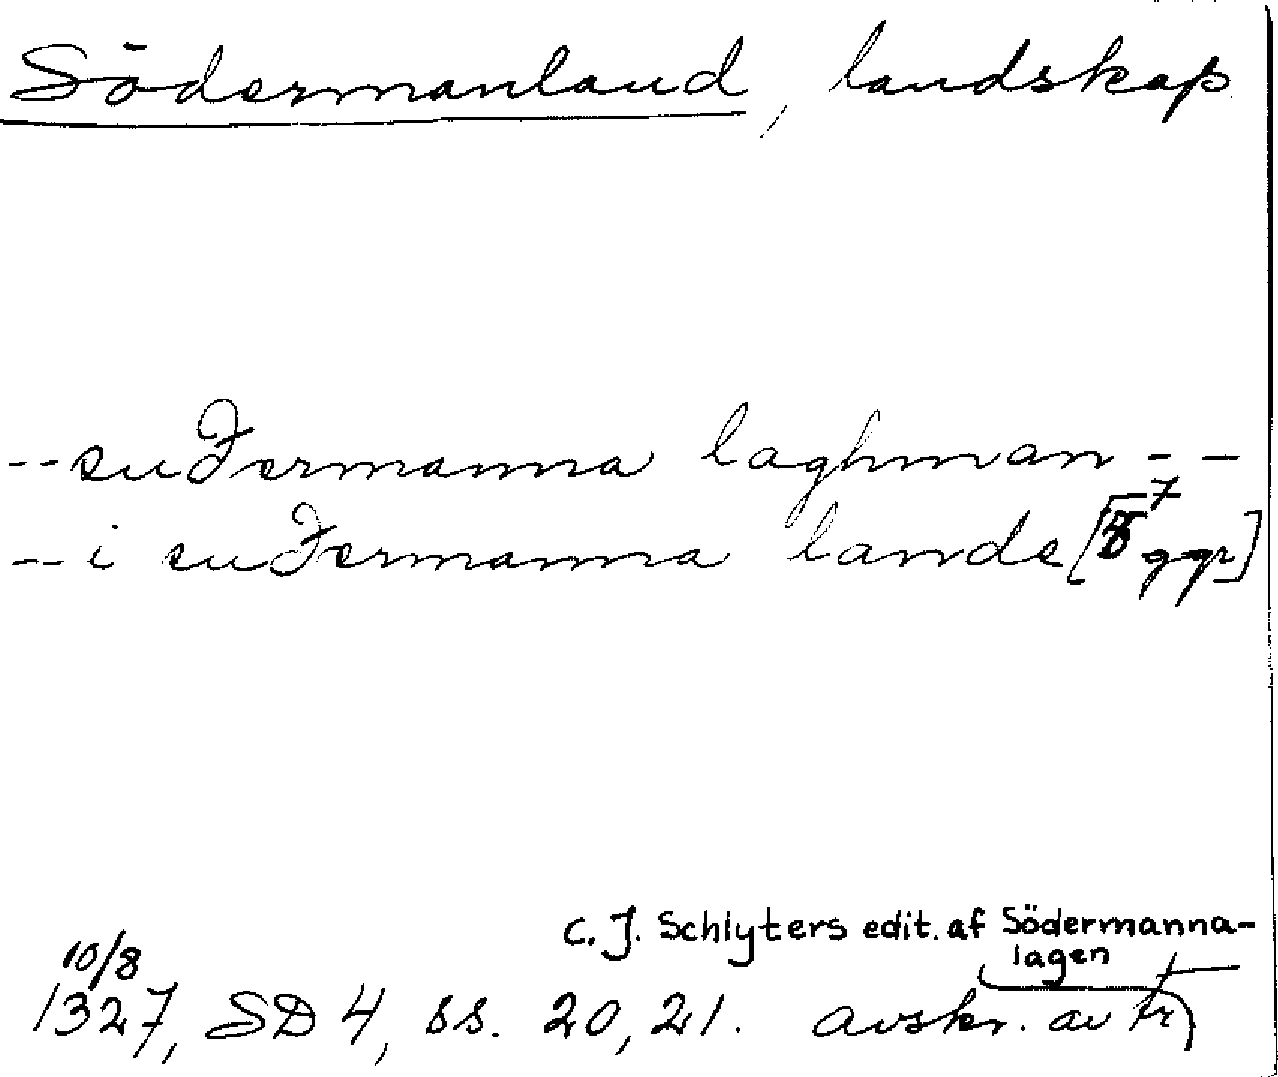 Södermanland, landskap
--suðermanna laghman--
--i suðermanna lande [7 ggr]
C. J. Schlyters edit. af Södermanna-
lagen
10/8
1327, SD 4, ss. 20, 21. avskr. av tr